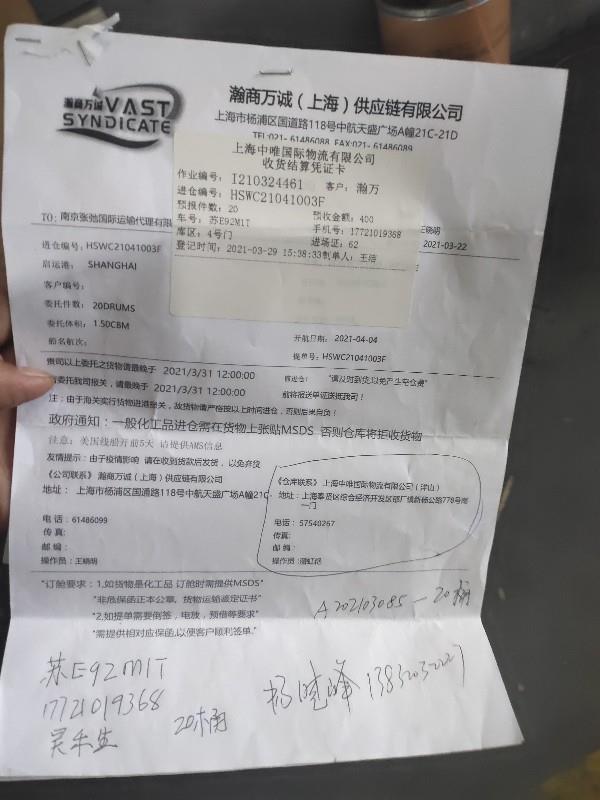 瀚商万诚 VAST
SYNDICATE
瀚商万诚（上海）供应链有限公司
上海市杨浦区国道路118号中航天盛广场A幢21C-21D
TEL:021- 61486088 FAX:021- 61486089
上海中唯国际物流有限公司
收货结算凭证卡
作业编号: I210324461 客户: 瀚万
进仓编号: HSWC21041003F
预报件数: 20 预收金额: 400
车号: 苏E92M1T 手机号: 17721019368
库区: 4号门 进场证: 62
登记时间: 2021-03-29 15:38:33 制单人: 王浩
TO: 南京张弛国际运输代理有限 王晓明
2021-03-22
进仓编号: HSWC21041003F
启运港: SHANGHAI
客户编号:
委托件数: 20DRUMS
委托体积: 1.50CBM 开航日期: 2021-04-04
船名航次: 提单号: HSWC21041003F
贵司以上委托之货物请最晚于 2021/3/31 12:00:00 前进仓! "请及时到货以免产生空仓费"
委托我司报关，请最晚于 2021/3/31 12:00:00 前将报送单证送抵我司！
注：由于海关实行货物进港报关，故货物请严格按以上时间进仓，否则后果自负！
政府通知：一般化工品进仓需在货物上张贴MSDS 否则仓库将拒收货物
注意：美国线船开前5天 请提供AMS信息
友情提示：由于疫情影响 请在收到货款后发货，以免弃货
《公司联系》 瀚商万诚（上海）供应链有限公司
地址： 上海市杨浦区国通路118号中航天盛广场A幢21C-
电话：61486099
传真:
邮编：
操作员：王晓明
《仓库联系》 上海中唯国际物流有限公司（洋山）
地址： 上海奉贤区综合经济开发区邵厂镇新杨公路778号南
一门
电话：57540267
传真:
邮编：
"订舱要求：1,如货物是化工品 订舱时需提供MSDS"
"非危保函正本公章，货物运输鉴定证书"
"2,如提单需要倒签，电放，预借等要求"
"需提供相对应保函,以便客户顺利签单."
A202103085—20桶
苏E92M1T
17721019368
20桶
杨晓峰